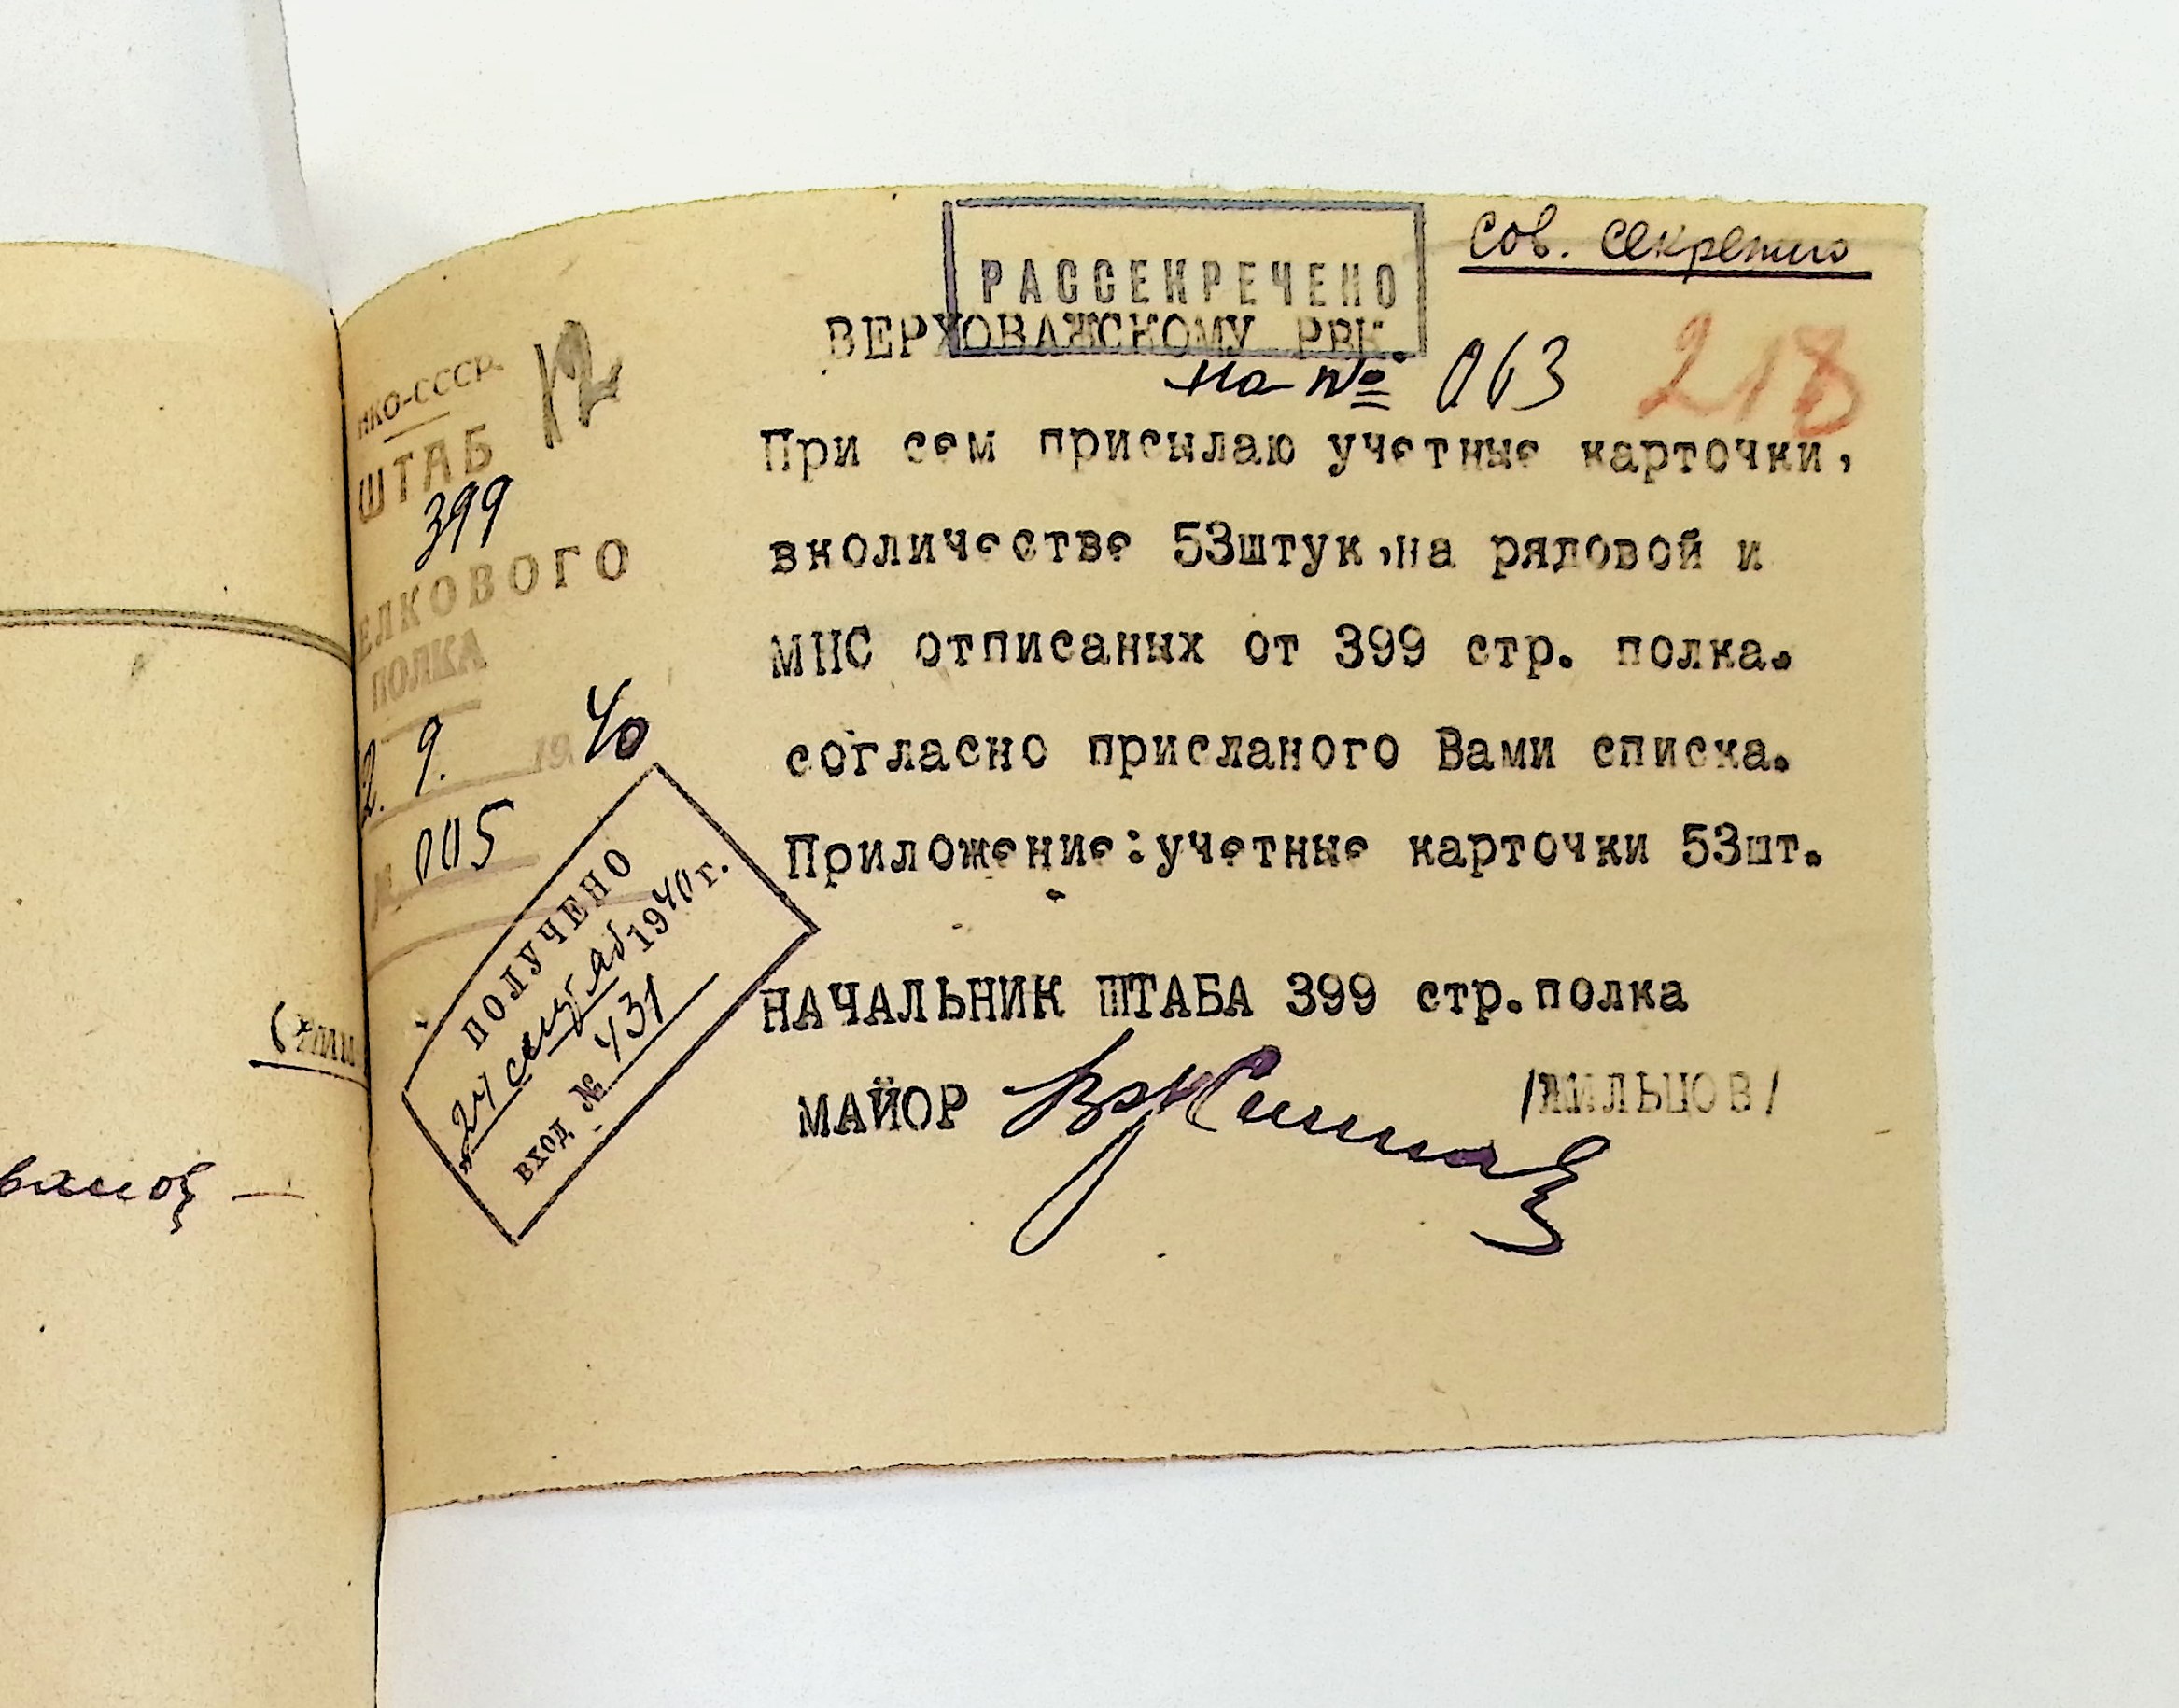 Сов. секретно
РАССЕКРЕЧЕНО
ВЕРХОВАЖСКОМУ РВК.
на № 063
218
12
НКО-СССР.
ШТАБ
399
ЕЛКОВОГО
ПОЛКА
2. 9. 1940
№ 005
ПОЛУЧЕНО
24 1940 г.
ВХОД № 431
При сем присылаю учетные карточки,
вколичестве 53штук,на рядовой и
МНС отписаных от 399 стр. полка.
согласно присланого Вами списка.
Приложение:учетные карточки 53шт.
НАЧАЛЬНИК ШТАБА 399 стр.полка
МАЙОР